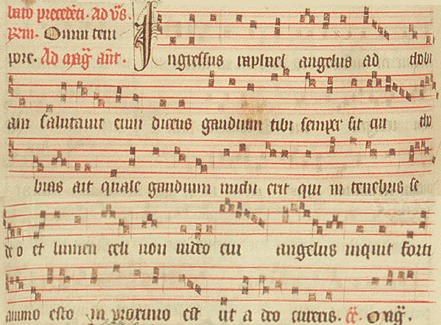 bato precedēti. Ad v̄s.
pm. Omni tem
pre. Ad mag̃. añt. Ingressus raphael angelus ad thobi
am salutauit eum dicens gaudium tibi semper sit cui tho
bias ait quale gaudium michi erit qui in tenebris se
deo et lumen celi non uideo cui angelus inquit forti
animo esto in proximo est ut a deo cureris.